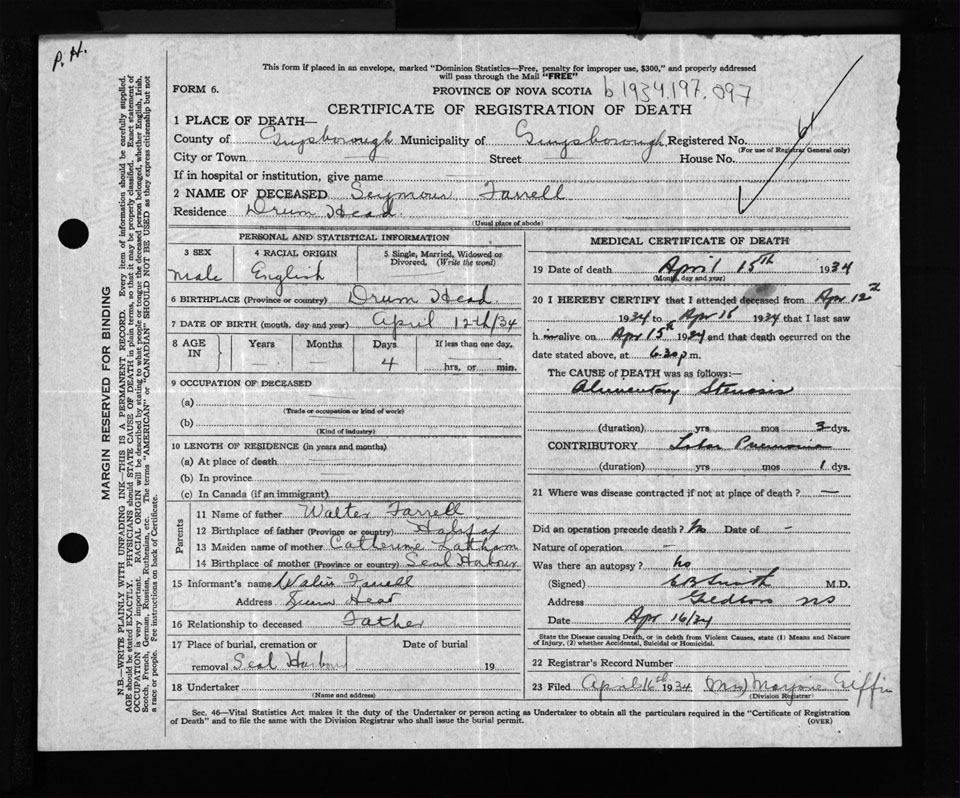 P. H.
This form if placed in an envelope, marked "Dominion Statistics—Free, penalty for improper use, $300," and properly addressed
will pass through the Mail "FREE"
FORM 6.
PROVINCE OF NOVA SCOTIA b 1934.197.097
CERTIFICATE OF REGISTRATION OF DEATH
1 PLACE OF DEATH—
County of Guysborough Municipality of Guysborough Registered No.
(For use of Registrar General only)
City or Town Street House No.
If in hospital or institution, give name
2 NAME OF DECEASED Seymour Farrell
Residence Drum Head.
(Usual place of abode)
PERSONAL AND STATISTICAL INFORMATION
3 SEX 4 RACIAL ORIGIN 5 Single, Married, Widowed or
Divorced, (Write the word)
male English
6 BIRTHPLACE (Province or country) Drum Head.
7 DATE OF BIRTH (month, day and year) April 12th/34
8 AGE IN Years Months Days If less than one day,
— — 4 hrs, or min.
9 OCCUPATION OF DECEASED
(a)
(Trade or occupation or kind of work)
(b)
(Kind of industry)
10 LENGTH OF RESIDENCE (in years and months)
(a) At place of death
(b) In province
(c) In Canada (if an immigrant)
Parents
11 Name of father Walter Farrell
12 Birthplace of father (Province or country) Halifax
13 Maiden name of mother Catherine
14 Birthplace of mother (Province or country) Seal Harbour
15 Informant's name Walter Farrell
Address Drum Head
16 Relationship to deceased Father
17 Place of burial, cremation or Date of burial
removal Seal Harbour 19
18 Undertaker
(Name and address)
MEDICAL CERTIFICATE OF DEATH
19 Date of death April 15th 1934
(Month, day and year)
20 I HEREBY CERTIFY that I attended deceased from Apr 12th
1934 to Apr 15 1934 that I last saw
h im alive on Apr 15th 1934 and that death occurred on the
date stated above, at 6.30 p.m.
The CAUSE of DEATH was as follows:—
Alimentary Stenosis
(duration) yrs mos 3 dys.
CONTRIBUTORY Lobar Pneumonia
(duration) yrs mos 1 dys.
21 Where was disease contracted if not at place of death? —
Did an operation precede death? No Date of —
Nature of operation —
Was there an autopsy? no
(Signed) E B Smith M.D.
Address NS
Date Apr 16/34
State the Disease causing Death, or in death from Violent Causes, state (1) Means and Nature
of Injury, (2) whether Accidental, Suicidal or Homicidal.
22 Registrar's Record Number
23 Filed April 16th 1934 (Mrs) Marjorie Giffin
(Division Registrar)
Sec. 46—Vital Statistics Act makes it the duty of the Undertaker or person acting as Undertaker to obtain all the particulars required in the "Certificate of Registration
of Death" and to file the same with the Division Registrar who shall issue the burial permit. (OVER)
MARGIN RESERVED FOR BINDING
N.B.—WRITE PLAINLY WITH UNFADING INK—THIS IS A PERMANENT RECORD. Every item of information should be carefully supplied.
AGE should be stated EXACTLY. PHYSICIANS should STATE CAUSE OF DEATH in plain terms, so that it may be properly classified. Exact statement of
OCCUPATION is very important. RACIAL ORIGIN will be described by stating to what people or tongue the deceased person belonged, whether English, Irish,
Scotch, French, German, Russian, Ruthenian, etc. The terms "AMERICAN" or "CANADIAN" SHOULD NOT BE USED as they express citizenship but not
a race or people. See instructions on back of Certificate.